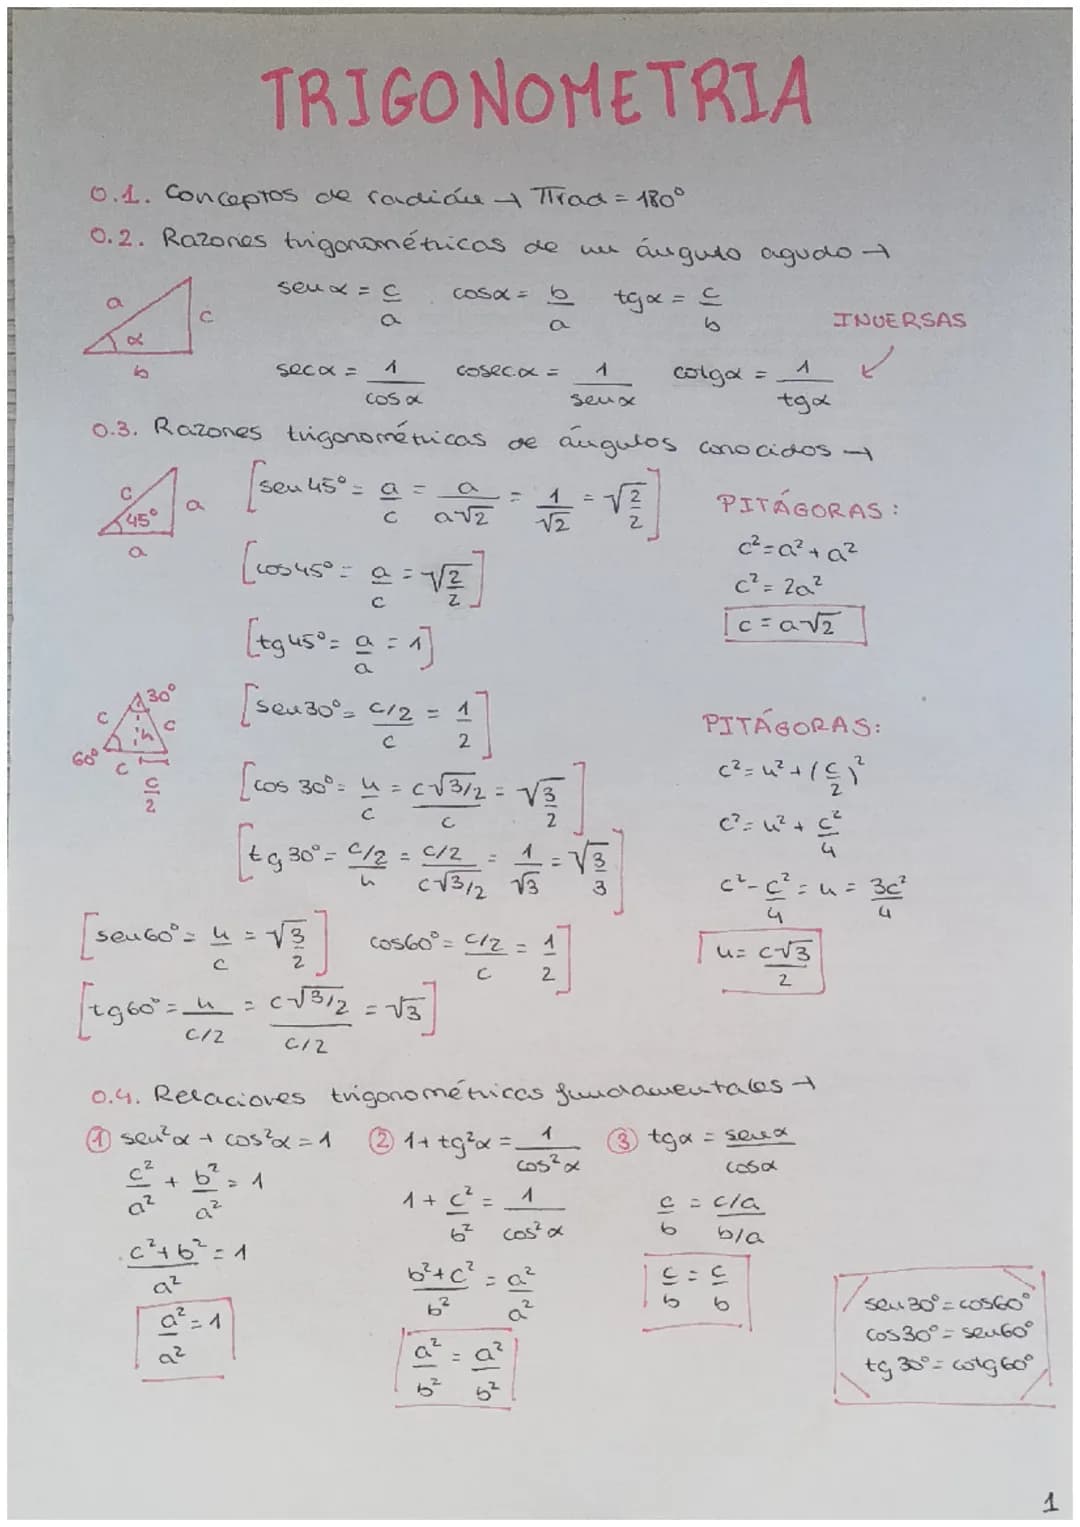 TRIGONOMETRIA
0.1. Conceptos de radián → πrad = 180°
0.2. Razones trigonométricas de un ángulo agudo →
a c α b
sen α = c/a cos α = b/a tg α = c/b
INVERSAS
sec α = 1/cos α cosec α = 1/sen α cotg α = 1/tg α
0.3. Razones trigonométricas de ángulos conocidos →
c 45° a a
[sen 45° = a/c = a/a√2 = 1/√2 = √2/2]
[cos 45° = a/c = √2/2]
[tg 45° = a/a = 1]
PITÁGORAS:
c² = a² + a²
c² = 2a²
c = a√2
30° c c h 60° c c/2
[sen 30° = c/2/c = 1/2]
[cos 30° = h/c = c√3/2/c = √3/2]
[tg 30° = c/2/h = c/2/c√3/2 = 1/√3 = √3/3]
PITÁGORAS:
c² = h² + (c/2)²
c² = h² + c²/4
c² - c²/4 = h = 3c²/4
h = c√3/2
[sen 60° = h/c = √3/2] cos 60° = c/2/c = 1/2]
[tg 60° = h/c/2 = c√3/2/c/2 = √3]
0.4. Relaciones trigonométricas fundamentales →
① sen²α + cos²α = 1
c²/a² + b²/a² = 1
c² + b²/a² = 1
a²/a² = 1
② 1 + tg²α = 1/cos²α
1 + c²/b² = 1/cos²α
b² + c²/b² = a²/a²
a²/b² = a²/b²
③ tg α = sen α/cos α
c/b = c/a/b/a
c/b = c/b
sen 30° = cos 60°
cos 30° = sen 60°
tg 30° = cotg 60°
1